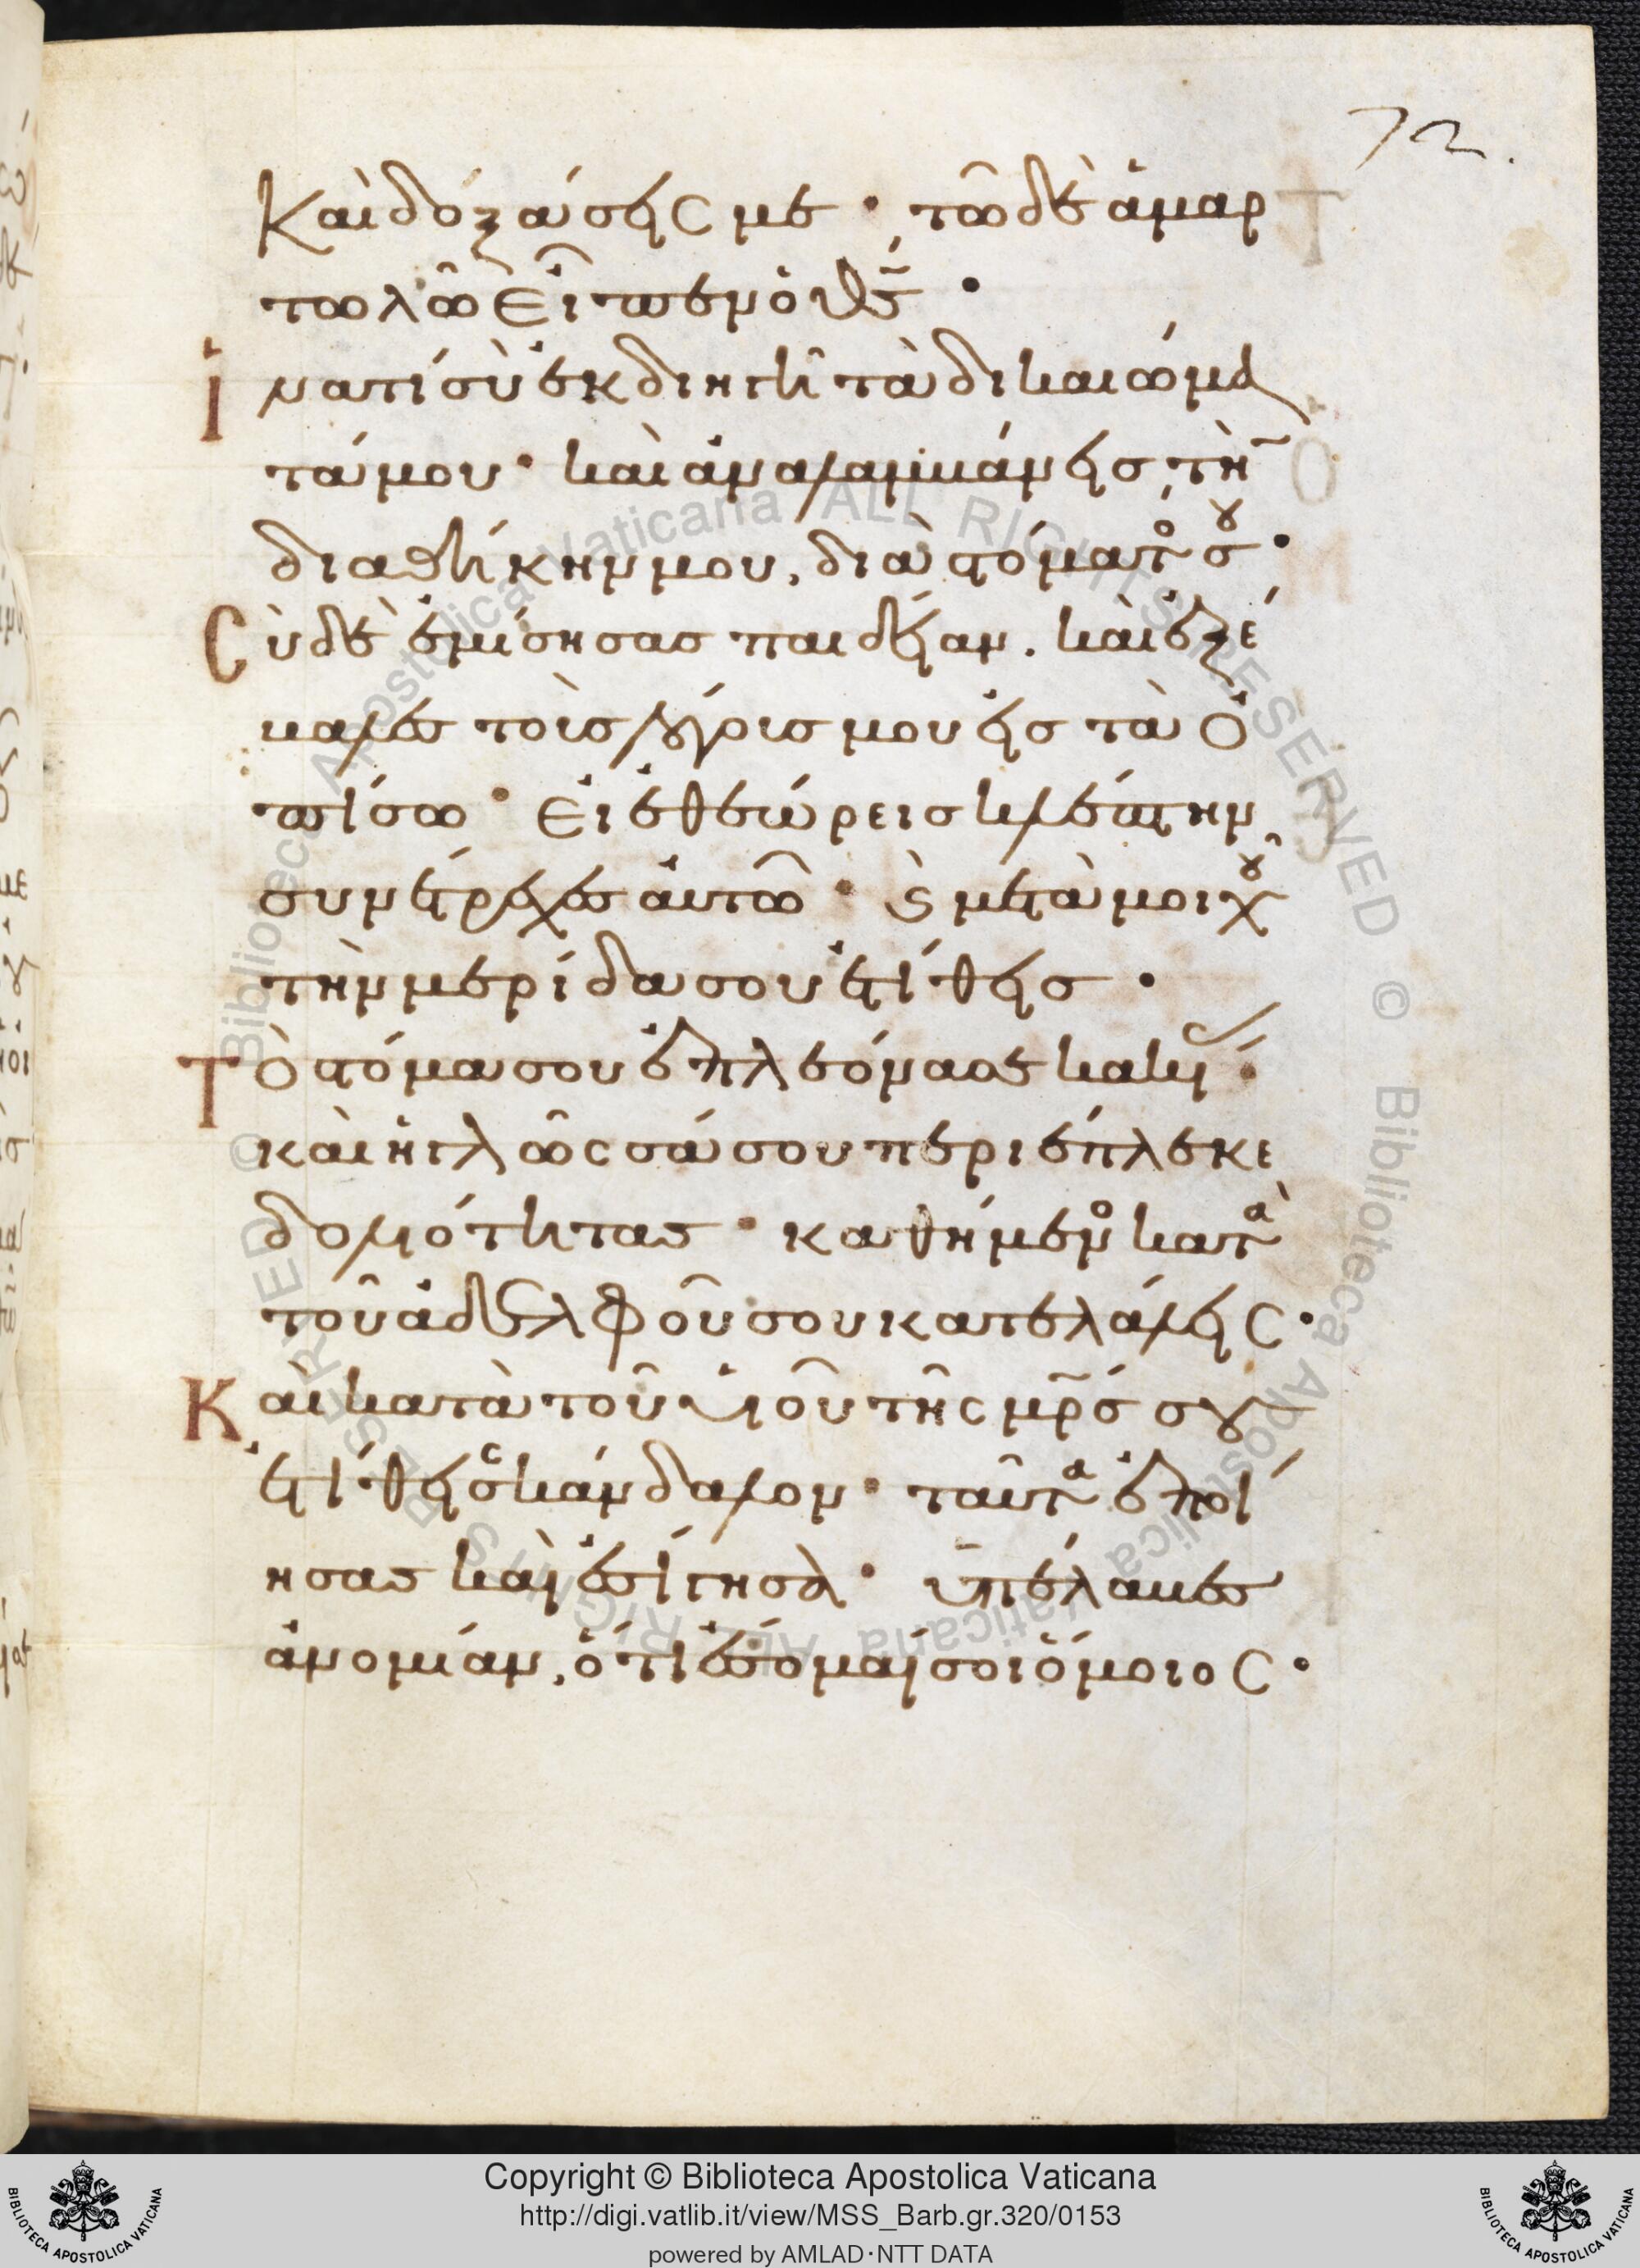 72.
Καὶ δοξάσεις με · τῶ δὲ ἁμαρ
τωλῶ εἶπεν ὁ θς ·
Ἱνατί σὺ ἐκδιηγῆ τὰ δικαιώμα
τά μου · καὶ ἀναλαμβάνεις τὴν
διαθήκην μου, διὰ στόματός σου ·
Σὺ δὲ ἐμίσησας παιδείαν . καὶ ἐξέ
βαλες τοὺς λόγους μου εἰς τὰ ὀ
πίσω · εἰ ἐθεώρεις κλέπτην,
συνέτρεχες αὐτῶ · καὶ μετὰ μοιχοῦ
τὴν μερίδα σου ἐτίθεις ·
Τὸ στόμα σου ἐπλεόνασε κακίαν ·
καὶ ἡ γλῶσσά σου περιέπλεκε
δολιότητας · καθήμενος κατὰ
τοῦ ἀδελφοῦ σου κατελάλεις ·
Καὶ κατὰ τοῦ υἱοῦ τῆς μρς σου
ἐτίθεις σκάνδαλον · ταῦτα ἐποί
ησας καὶ ἐσίγησα · ὑπέλαβες
ἀνομίαν, ὅτι ἔσομαί σοι ὅμοιος ·
Copyright © Biblioteca Apostolica Vaticana
http://digi.vatlib.it/view/MSS_Barb.gr.320/0153
powered by AMLAD·NTT DATA
BIBLIOTECA APOSTOLICA VATICANA
BIBLIOTECA APOSTOLICA VATICANA